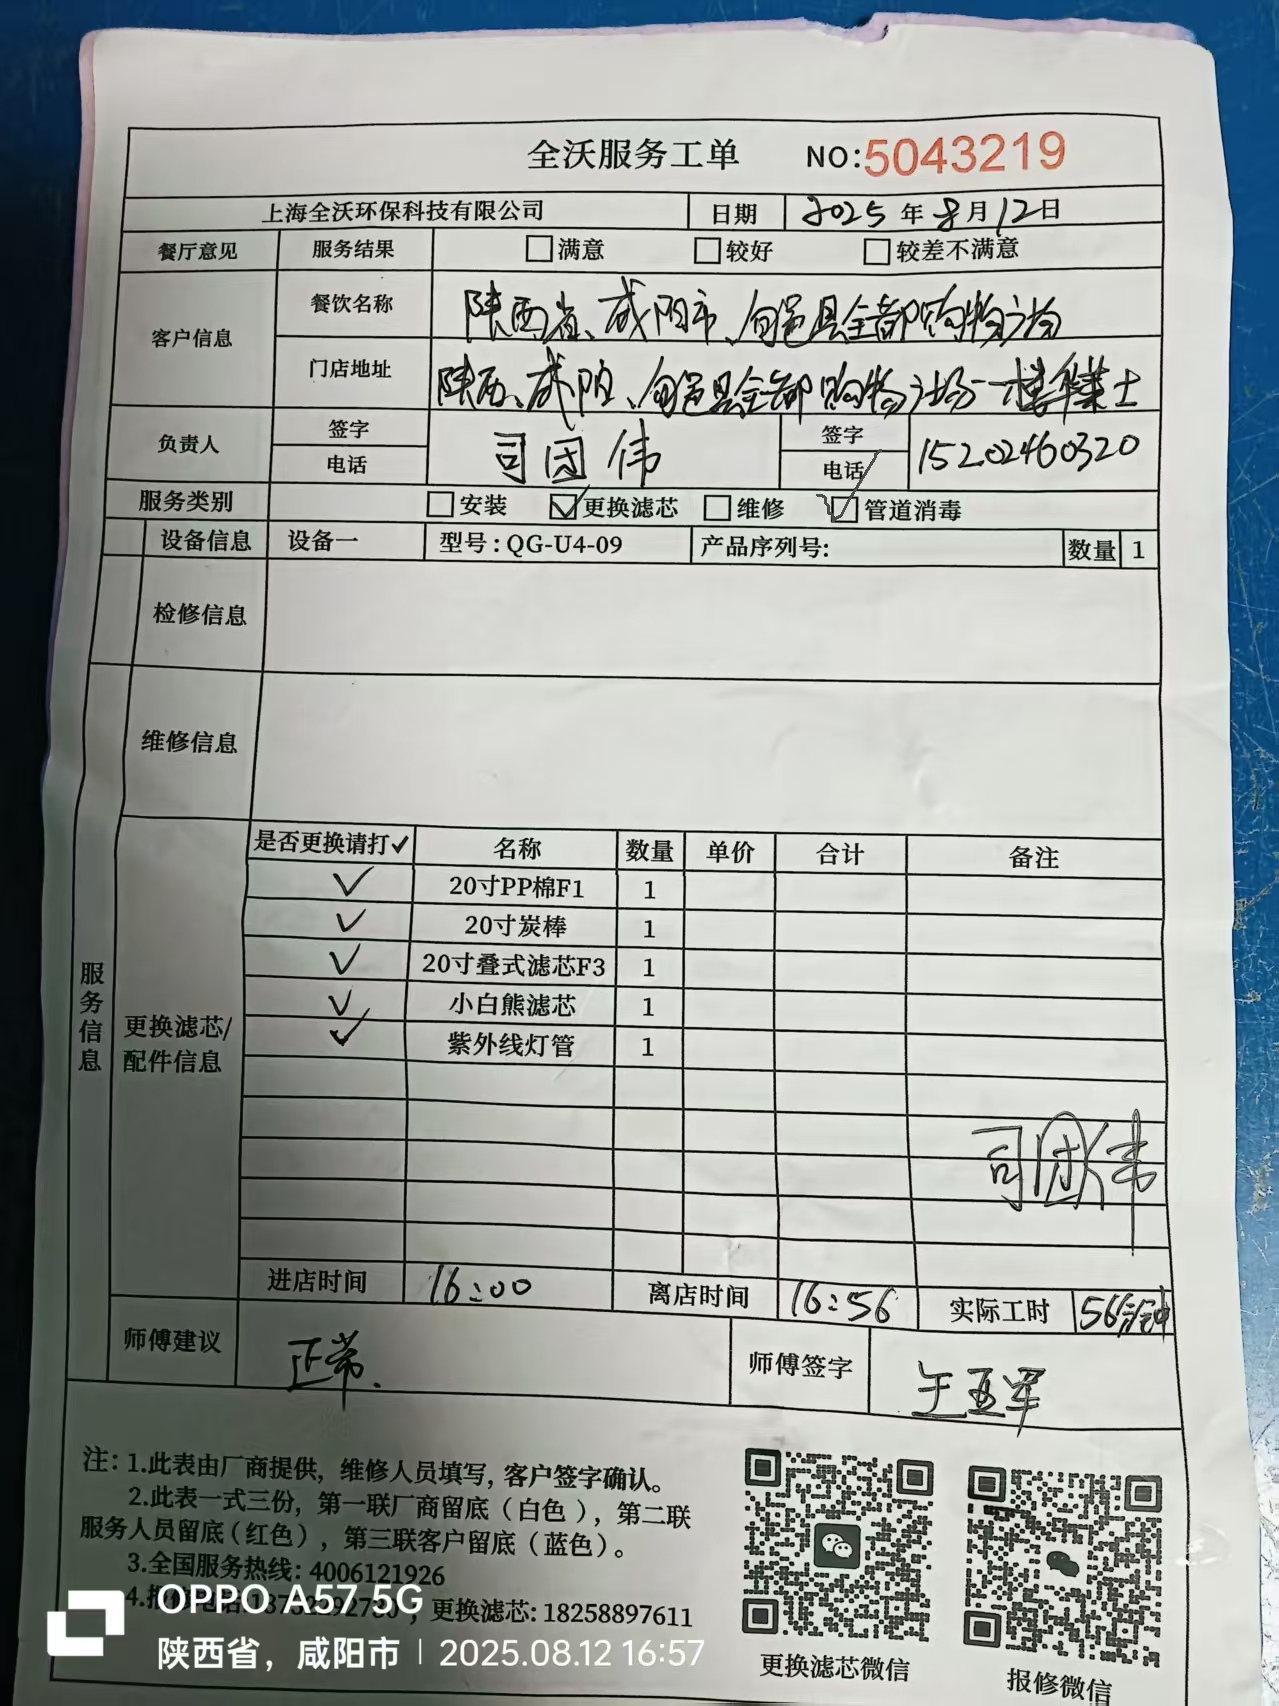 全沃服务工单 NO:5043219
上海全沃环保科技有限公司 日期 2025年8月12日
餐厅意见 服务结果 □满意 □较好 □较差不满意
客户信息 餐饮名称 陕西省、咸阳市、旬邑县全都购物广场
门店地址 陕西、咸阳、旬邑县全都购物广场一楼华莱士
负责人 签字 电话 司团伟 签字 电话 15202460320
服务类别 □安装 ☑更换滤芯 □维修 ☑管道消毒
设备信息 设备一 型号:QG-U4-09 产品序列号: 数量 1
检修信息
维修信息
服务信息
更换滤芯/配件信息
是否更换请打✓ 名称 数量 单价 合计 备注
✓ 20寸PP棉F1 1
✓ 20寸炭棒 1
✓ 20寸叠式滤芯F3 1
✓ 小白熊滤芯 1
✓ 紫外线灯管 1
司团伟
进店时间 16:00 离店时间 16:56 实际工时 56分钟
师傅建议 正常. 师傅签字 王亚军
注: 1.此表由厂商提供, 维修人员填写, 客户签字确认。
2.此表一式三份, 第一联厂商留底(白色), 第二联
服务人员留底(红色), 第三联客户留底(蓝色)。
3.全国服务热线: 4006121926
4.报修电话: , 更换滤芯: 18258897611
更换滤芯微信 报修微信
OPPO A57 5G
陕西省, 咸阳市 | 2025.08.12 16:57